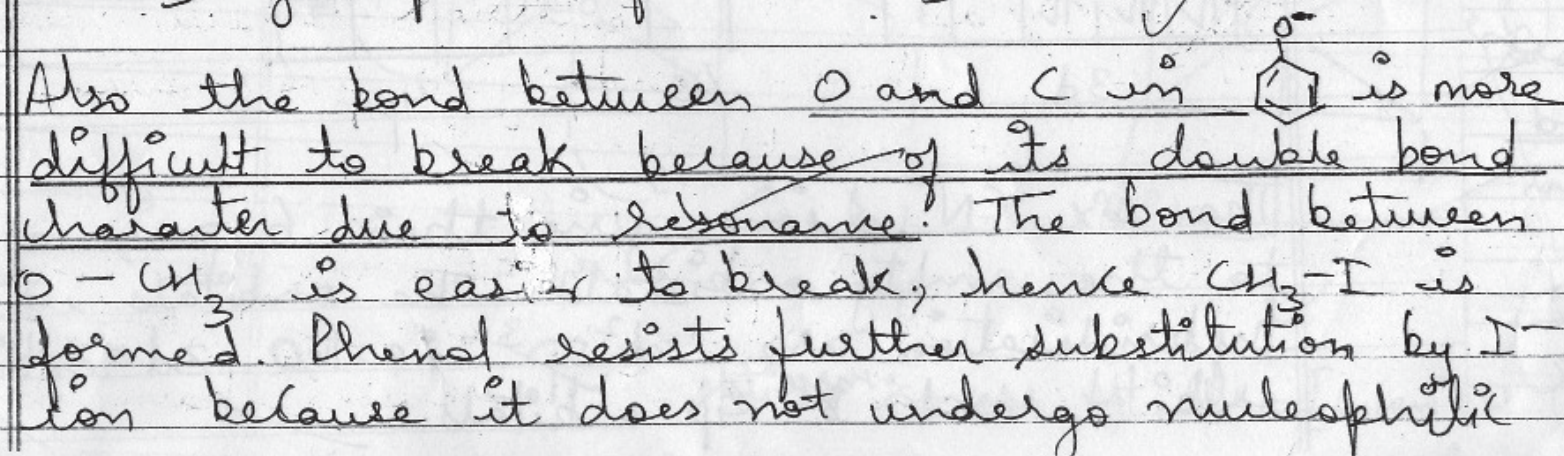 Also the bond between O and C in O⁻ is more
difficult to break because of its double bond
character due to resonance. The bond between
O - CH₃ is easier to break, hence CH₃-I is
formed. Phenol resists further substitution by I⁻
ion because it does not undergo nucleophilic